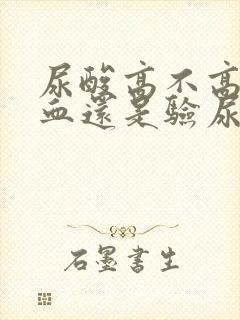 尿酸高不高
血還是驗尿
石墨書生